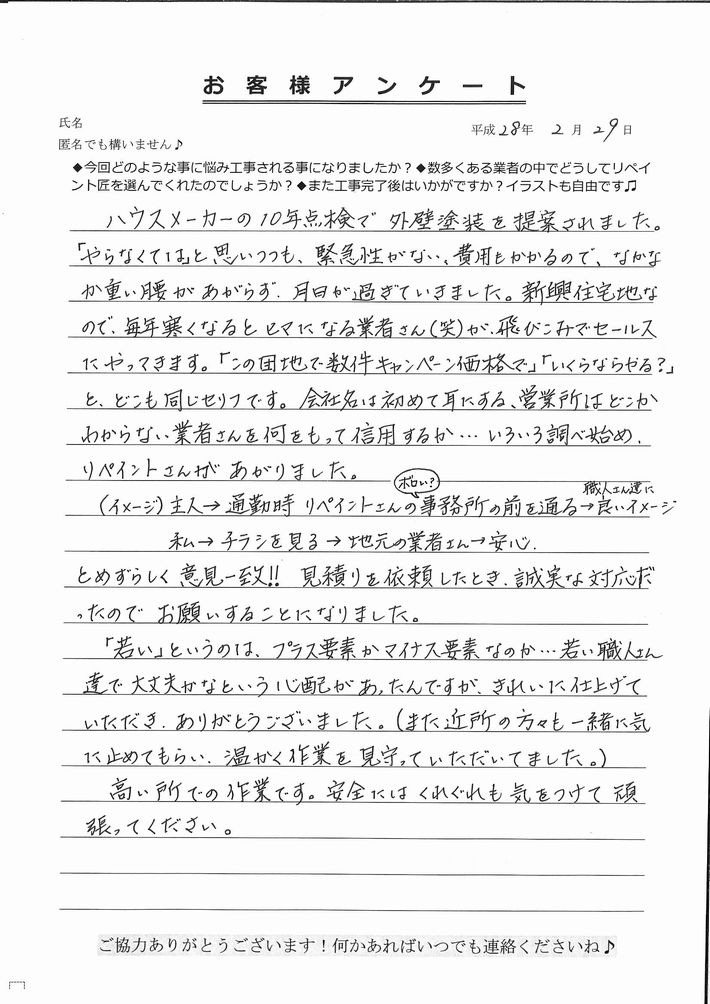 お客様アンケート
氏名
平成28年 2月29日
匿名でも構いません♪
◆今回どのような事に悩み工事される事になりましたか？◆数多くある業者の中でどうしてリペイ
ント匠を選んでくれたのでしょうか？◆また工事完了後はいかがですか？イラストも自由です♫
ハウスメーカーの10年点検で 外壁塗装を提案されました。
「やらなくては」と思いつつも、緊急性がない、費用もかかるので、なかな
か重い腰があがらず、月日が過ぎていきました。新興住宅地な
ので、毎年寒くなるとヒマになる業者さん(笑)が、飛びこみでセールス
にやってきます。「この団地で数件キャンペーン価格で」「いくらならやる？」
と、どこも同じセリフです。会社名は初めて耳にする、営業所はどこか
わからない業者さんを何をもって信用するか…いろいろ調べ始め、
リペイントさんがあがりました。
ボロい？ 職人さん達に
(イメージ)主人→通勤時 リペイントさんの事務所の前を通る→良いイメージ
私→チラシを見る→地元の業者さん→安心.
とめずらしく意見一致!! 見積りを依頼したとき、誠実な対応だ
ったので お願いすることになりました。
「若い」というのは、プラス要素かマイナス要素なのか…若い職人さん
達で大丈夫かなという心配があったんですが、きれいに仕上げて
いただき、ありがとうございました。(また近所の方々も一緒に気
に止めてもらい、温かく作業を見守っていただいてました。)
高い所での作業です。安全にはくれぐれも気をつけて頑
張ってください。
ご協力ありがとうございます！何かあればいつでも連絡くださいね♪